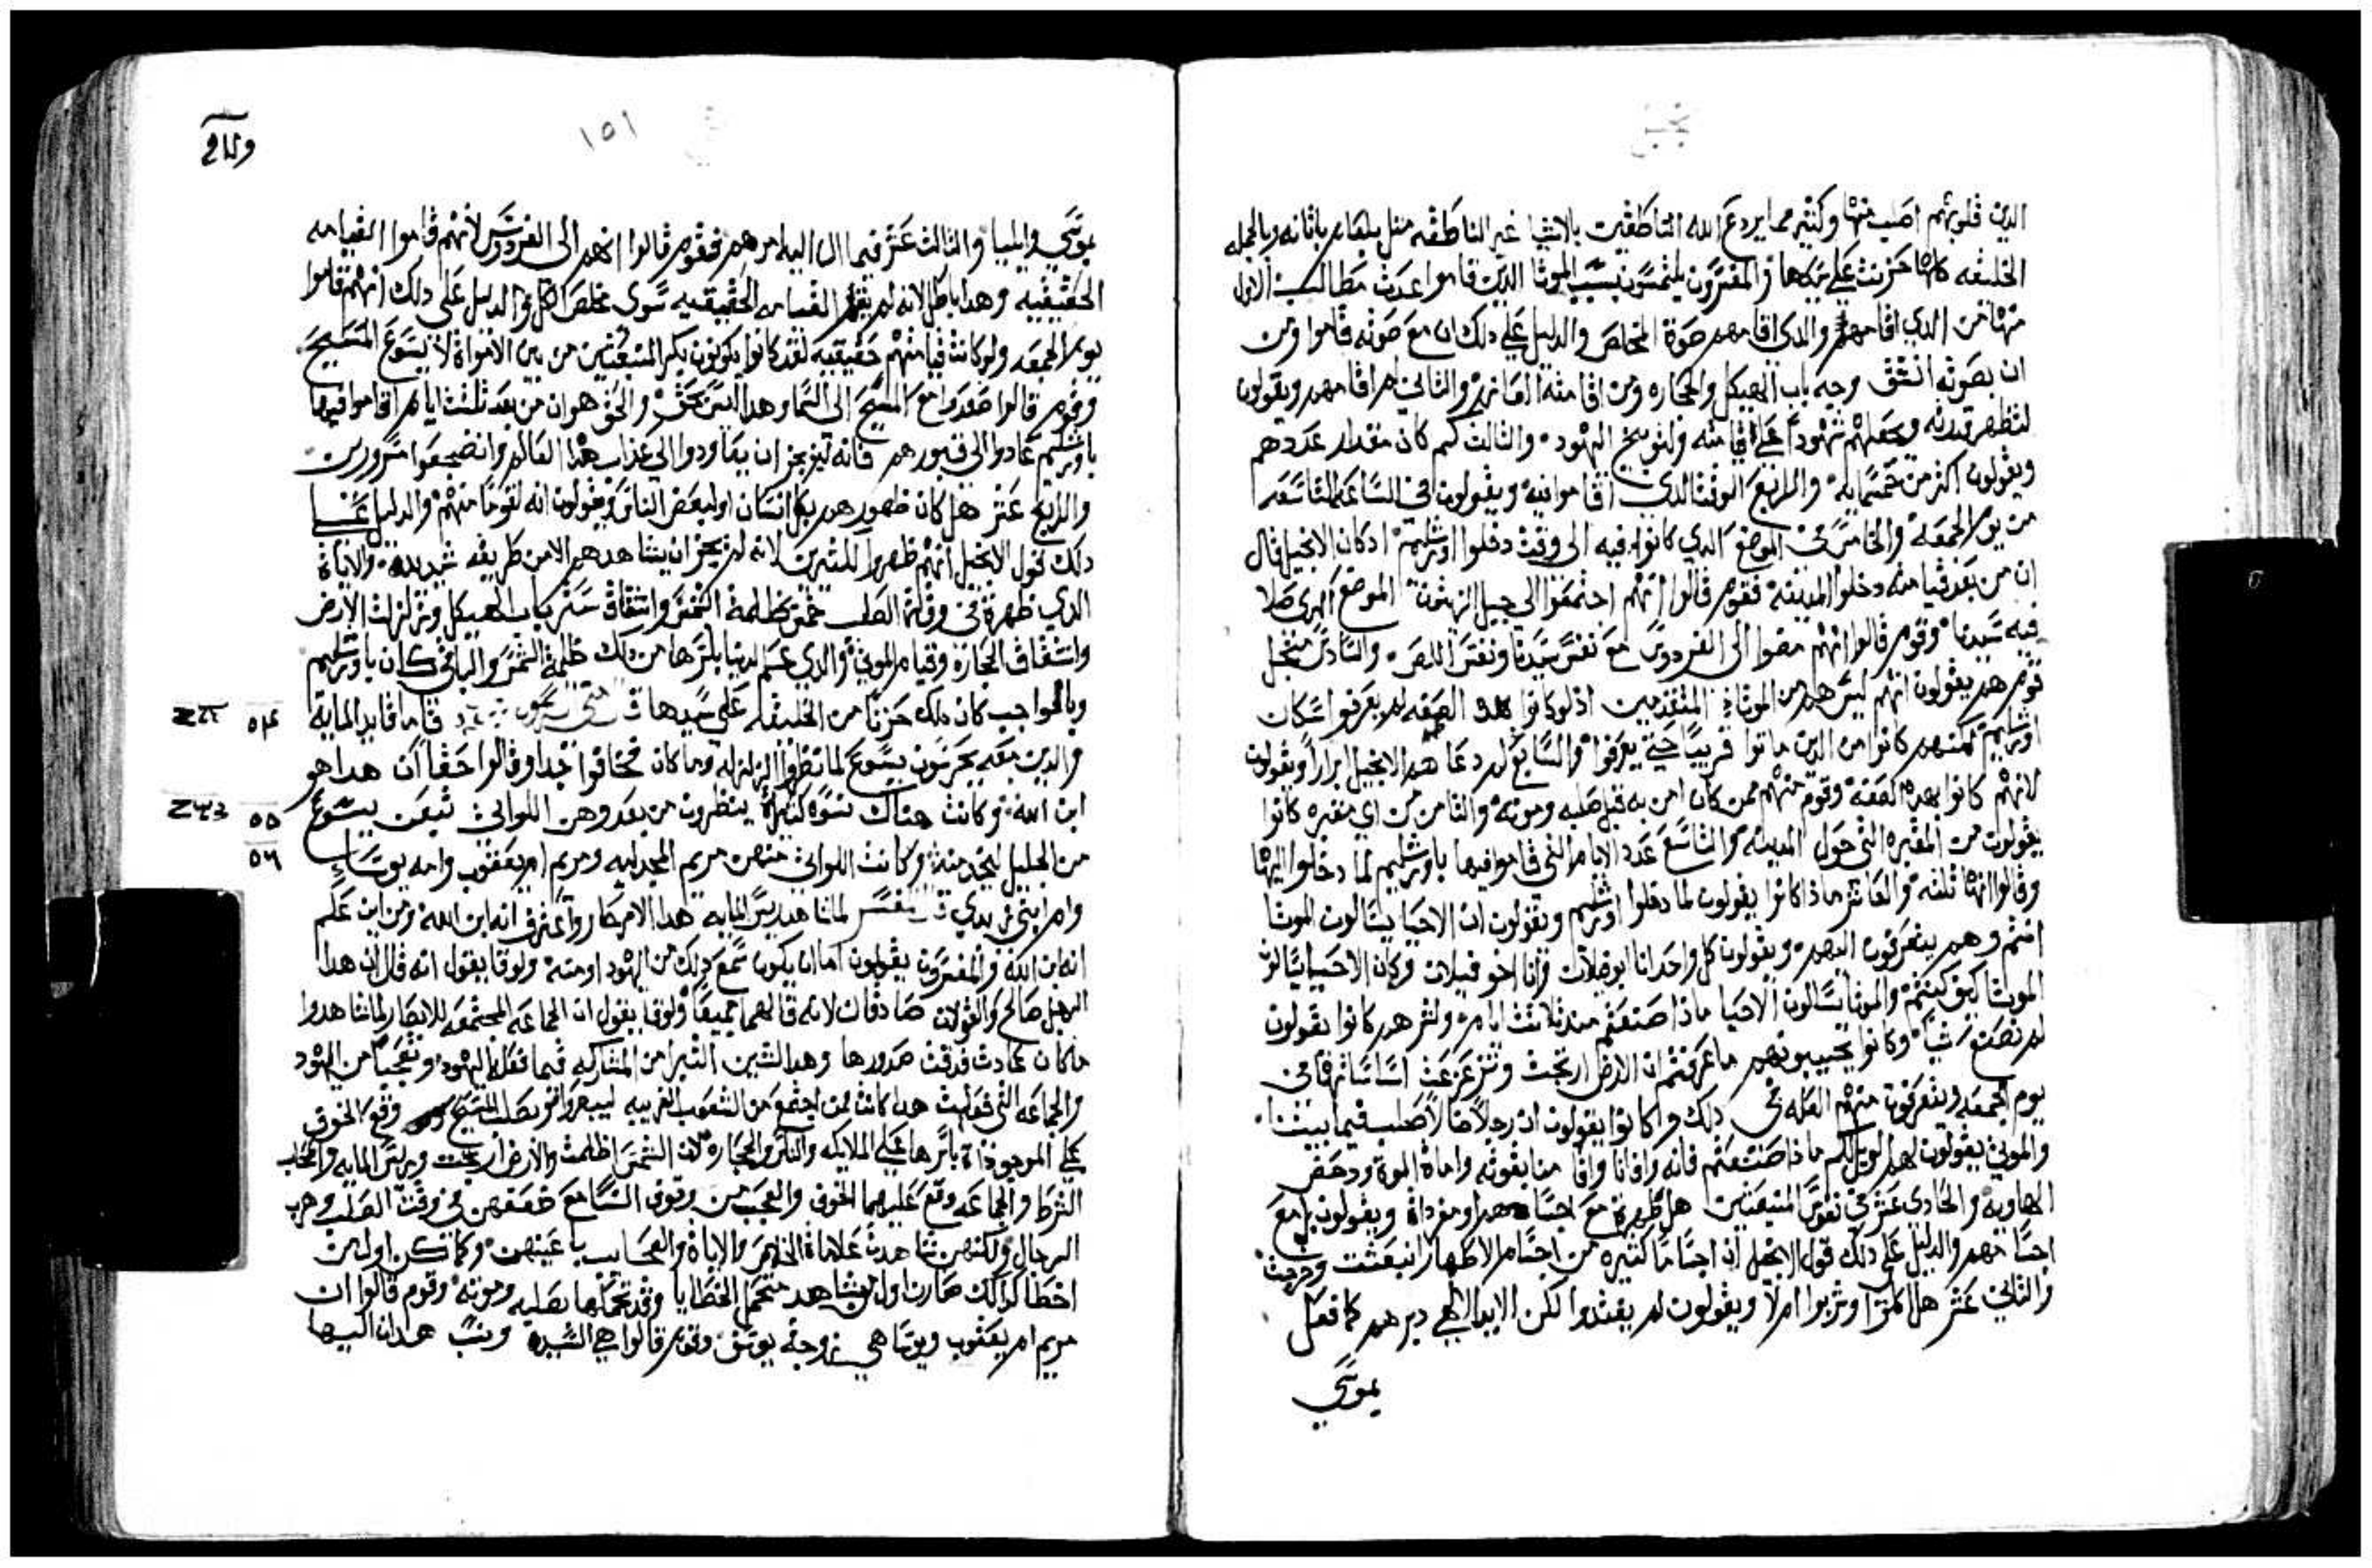 الدين قلوبهم اصلب منها وكثير مما يردع الله الناطقين بالاشيا غير الناطقه مثل بلعام باتانه وبالجمله
الخليقه كلها حزنت على والمفسرون يلتمسون بسبب الموتا الدين قاموا عدت مطالب الاول
منها من الدي اقامهم والدي اقامهم صوة المخلص والدليل على دلك ان مع صوته قاموا ومن
ان بصوته انشق وجه باب الهيكل والحجاره ومن اقامته العازر والتاني لم اقامهم ويقولون
لتظهر قدرته وجعلهم شهودا على قيامته ولتوبيخ اليهود والتالت كم كان مقدار عددهم
ويقولون اكثر من خمسمايه والرابع الوقت الدي اقاموا فيه ويقولون في الساعه التاسعه
من يوم الجمعه والخامس في الموضع الدي كانوا فيه الى وقت دخلوا اورشليم اد كان الانجيل قال
ان من بعد قيامته دخلوا المدينه فقوم قالوا انهم اجتمعوا الى جبل الزيتون الموضع الدي صلا
فيه سيدنا وقوم قالوا انهم مضوا الى الفردوس مع نفس سيدنا ونفس اللص والسادس
قوم هم يقولون انهم ليس هم من الموتا المتقدمين اذ لو كانوا بهده الصفه لم يعرفوا سكان
اورشليم لكنهم كانوا من الدين ماتوا قريبا حتى يعرفوا والسابع لم دعاهم الانجيل ابرارا ويقولون
لانهم كانوا بهده الصفه وقوم منهم ممن كان امن به قبل صلبه وموته والثامن من اي مقبره كانوا
يقولون من المقبره التي حول المدينه والتاسع عدد الايام التي قاموا فيها باورشليم لما دخلوا اليها
وقالوا انها ثلثه والعاشر ماذا كانوا يقولون لما دخلوا اورشليم ويقولون ان الاحيا يسالون الموتا
انتم وهم يتعرفون اليهم ويقولون كل واحد انا ابو فلان وانا اخو فيلان وكان الاحيا يسالون
الموتا كيف كنتم والموتا يسالون الاحيا ماذا صنعتم مند ثلاثت ايام ولترهم كانوا يقولون
لم نصنع شيا وكانوا يجيبونهم ما عرفتم ان الارض ارتجت وتزعزعت اساساتها في
يوم الجمعه ويتعرفون منهم العله في دلك وكانوا يقولون ان رجلا ضالا صلب فيما بيننا
والموتى يقولون لهم الويل لكم ماذا صنعتم فانه وافانا واقامنا بقوته واماة الموة ودحض
الهاويه والحادي عشر في نفوس المنبعتين هل ظهرة مع اجسامهم او مفرداة ويقولون بل مع
اجسامهم والدليل على دلك قول الانجيل ان اجساما كتيره من اجسام الاطهار انبعتت وخرجت
والتاني عشر هل اكلوا وشربوا ام لا ويقولون لم يغتدوا لكن الايد الالهي دبرهم كما فعل
بموسى
١٥١
بموسى وايليا والتالت عشر فيما ال اليه امرهم فقوم قالوا انهم الى الفردوس لانهم قاموا القيامه
الحقيقيه وهدا باطل لانه لم يقم القيامه الحقيقيه سوى مخلص الكل والدليل على دلك انهم قاموا
يوم الجمعه ولو كانت قيامتهم حقيقيه لقد كانوا يكونون بكر المنبعتين من بين الامواة لا يسوع المسيح
وقوم قالوا صعدوا مع المسيح الى السما وهدا ليس بحق والحق هو ان من بعد ثلثت ايام اقاموا فيها
باورشليم عادوا الى قبورهم فانه ليز يجز ان يعاودوا الى عداب هدا العالم وانضجعوا مسرورين
والرابع عشر هل كان ظهورهم لكل انسان او لبعض الناس ويقولون انه لقوما منهم والدليل على
دلك قول الانجيل انهم ظهروا للكتيرين لانه لم يجز ان يشاهدهم الا من طريقه شديده والاياة
الدي ظهرة في وقت الصلب خمس ظلمة الشمس وانشقاق ستر باب الهيكل وتزلزلت الارض
وانشقاق الحجارة وقيام الموتى والدي عم الدنيا باسرها من دلك ظلمة الشمس والباقي كان باورشليم
وبالواجب كان دلك حزنا من الخليقه على سيدها قاما قايد المايه
والدين معه يحرسون يسوع لما نظروا الزلزله وما كان خافوا جدا وقالوا حقا ان هدا هو
ابن الله وكانت هناك نسوه كتيرة ينظرون من بعد وهن اللواتي تبعن يسوع
من الجليل ليخدمنه وكانت اللواتي منهن مريم المجدليه ومريم ام يعقوب وامه يوسا
وام ابني زبدي لما شاهد ريس المايه هدا الامر حار واعترف انه ابن الله ومن اين علم
انه ابن الله والمفسرون يقولون اما ان يكون سمع دلك من اليهود او منه ولوقا يقول انه قال ان هدا
الرجل صالح والقولان صادقان لانه قالهما جميعا ولوقا يقول ان الجماعه المجتمعه للابصار لما شاهدوا
ما كان عادت قدقت صدورها وهدا لتبين التبرا من المشاركه فيما فعله اليهود وتعجبا من اليهود
والجماعه التي فعلت هدا كانت ممن اجتمع من الشعوب الغريبه ليبصروا صلب المسيح وقع الخوف
على الموجوداة باسرها على الملايكه والناس والحجاره لان الشمس اظلمت والارض ارتجت وريس المايه واصحاب
الشرط والجماعه وقع عليهما الخوف والعجب من وقوف النسا مع ضعفهن في وقت الصلب وهرب
الرجال ولكنهن شاهدن علاماة الخلاص والاياة والعجايب باعينهن وكما تكن اول من
اخطا كدالك صارن اول من شاهد متحمل الخطايا وقد تحملها بصلبه وموته وقوم قالوا ان
مريم ام يعقوب ويوسا هي زوجة يوسف وقوم قالوا هي السيده ونسب هدان اليها
٥٤
٥٥
٥٦